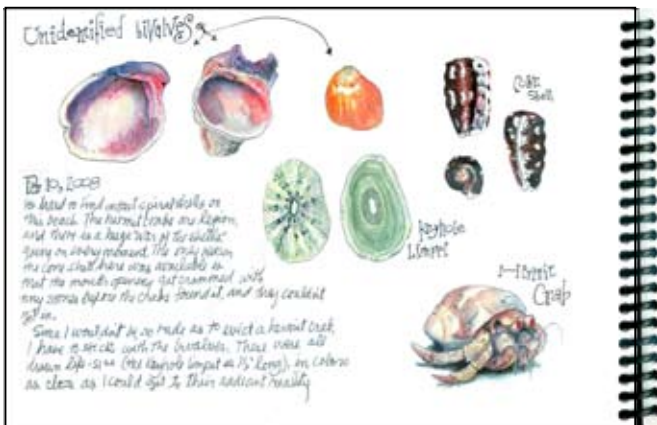 Unidentified bivalves
Cone
Shell
Feb 10, 2008
So hard to find intact spiral shells on
this beach. The hermit crabs are legion,
and there is a huge War of the Shells
going on every moment. The only reason
the cone shell here was available is
that the mouth opening got crammed with
tiny stones before the crabs found it, and they couldn't
get in.
Since I wouldn't be so rude as to evict a hermit crab,
I have to stick with the bivalves. These were all
drawn life-size (the keyhole limpet is 1½" long), in colors
as close as I could get to their radiant reality
Keyhole
Limpet
Hermit
Crab